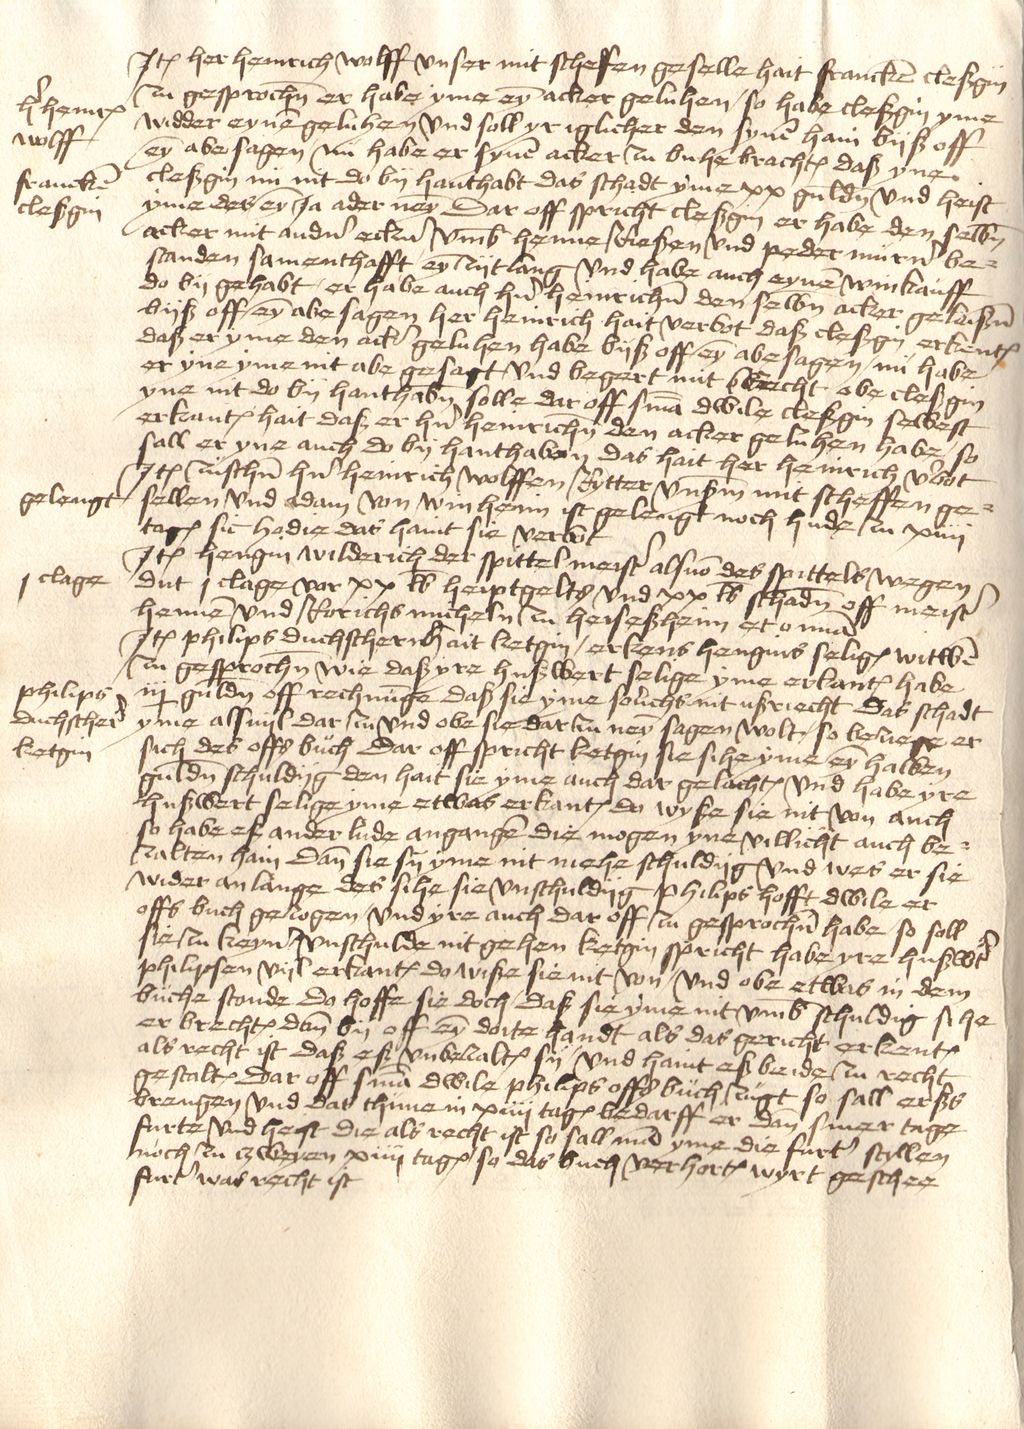 h' heinr
wolff
francken
cleßgin
Jt her heinrich wolff unser mit scheffen geselle hait francken cleßgin
zu gesprochen er habe yme ey acker geluhen / so habe cleßgin yme
widder eynen geluhen und soll yr iglicher den synen hain biiß off
ey abesagen / nu habe er synen acker zu buhe bracht daß yne
cleßgin nu nit do bij hanthabt das schadt yme xx guldn und heist
yme des ey Ja ader ney Dar off spricht cleßgin er habe den selben
acker mit andern eckern umb henne kießen und peder murer be=
standen samenthafft ey zijtlang und habe auch eynen winkauff
do bij gehabt / er habe auch hern heinrichen den selben acker geluhen
bijß off ey abesagen her heinrich hait verbot daß cleßgin erkent
daß er yme den acker geluhen habe bijß off ey abesagen / nu habe
er yne yme nit abe gesagt und begert mit recht obe cleßgin
yne nit do bij hanthaben solle dar off sma dwile cleßgin selbest
erkant hait daß er hern heinrichen den acker geluhen habe / so
sall er yne auch do bij hanthaben das hait her heinrich v'bot
gelengt
Jt zuschen hern heinrich wolffen Rytter unßerm mit scheffen ge=
sellen und adam von winheim ist gelengt noch hude zu xiiij
tag sic hodie das haint sie verbot
j clage
Jt hengin wilderich der spittelmeister alsuo des spittels wegen
dut j clage vor xx lb heiptgelts und xx lb schadn off meister
hennen und Korichs micheln zu heiseßheim et omnia
philips
duchscherer
ketgin
Jt philips duchscherer hait ketgin / erkens hengins selig witwen
zu gesprochen wie daß yre hußwert selige yme erkant habe
iij guldn off rechnunge daß sie yme solichs nit ußriecht das schadt
yme alsvijl dar zu und obe sie dar zu ney sagen wolt / so beziege er
sich des offs buch Dar off spricht ketgin sie sihe yme ey halben
guldn schuldijg den hait sie yme auch dar gelacht / und habe yre
hußwert selige yme etwas erkant do wyße sie nit von auch
so habe eß ander lude angangen die mogen yne villicht auch be=
zalten hain dan sie sij yme nit mehe schuldijg und wes er sie
wider anlange des sihe sie unschuldijg philips hofft dwile er
offs buch gezogen / und yre auch dar off zu gesprochen habe / so soll
sie zu keyner unschulde nit gehen ketgin spricht habe yre hußwert
philipsen vijl erkant do wiße sie nit von / und obe etwas in dem
buche stonde do hoffe sie doch / daß sie yme nit umb schuldig sihe
er brecht dan bij off ey doite handt als das gericht erkent
als recht ist daß eß unbezalt sij / und haint eß beide zu recht
gestalt Dar off sma dwile philips offs buch zugt so sall erßs
brengen und das thune in xiiij tag bedarff er dan siner tage
furte und heist die als recht ist so sall man yme die furter styllen
noch zu zweyen xiiij tag so das buch verhort wyrt geschee
furter was recht ist